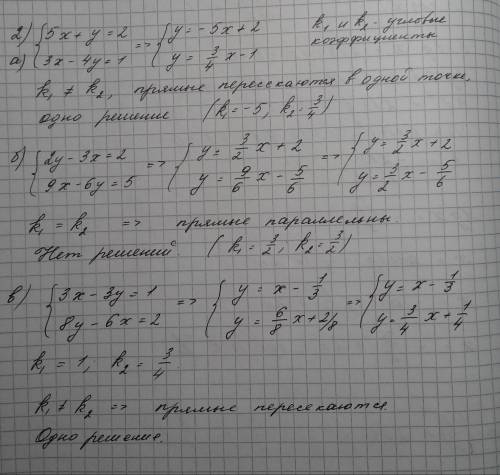 2) { 5x + y = 2 => { y = -5x + 2 k₁ и k₂ - угловые
а) { 3x - 4y = 1 { y = 3/4 x - 1 коэффициенты
k₁ ≠ k₂, прямые пересекаются в одной точке,
одно решение (k₁ = -5, k₂ = 3/4)
б) { 2y - 3x = 2 => { y = 3/2 x + 2 => { y = 3/2 x + 2
{ 9x - 6y = 5 { y = 9/6 x - 5/6 { y = 3/2 x - 5/6
k₁ = k₂ => прямые параллельны.
Нет решений. (k₁ = 3/2, k₂ = 3/2)
в) { 3x - 3y = 1 => { y = x - 1/3 => { y = x - 1/3
{ 8y - 6x = 2 { y = 6/8 x + 2/8 { y = 3/4 x + 1/4
k₁ = 1; k₂ = 3/4
k₁ ≠ k₂ => прямые пересекаются.
Одно решение.